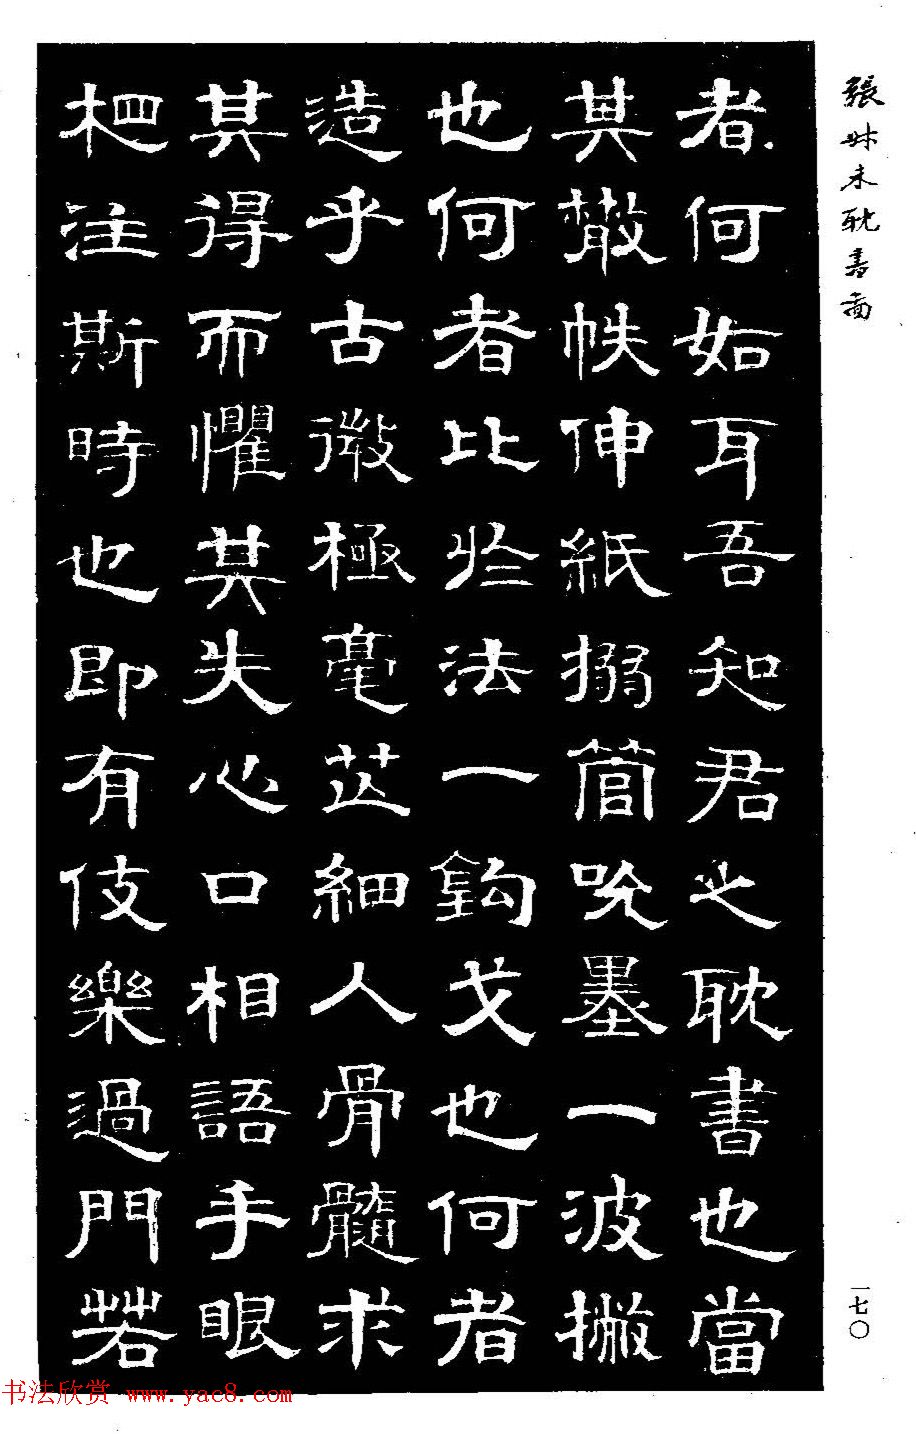 張叔未耽書啚
者何如耳吾知君之耽書也當
其散帙伸紙搦管吮墨一波撇
也何者比於法一鈎戈也何者
造乎古微極毫芒細入骨髓求
其得而懼其失心口相語手眼
杷注斯時也即有伎樂過門若
一七〇
书法欣赏 www.yac8.com